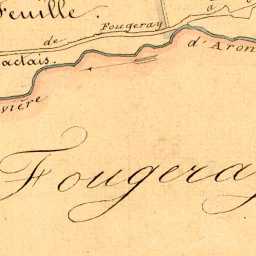 Feuille.
à
de Fougeray
d'Aron
actais.
vière
Fougeray